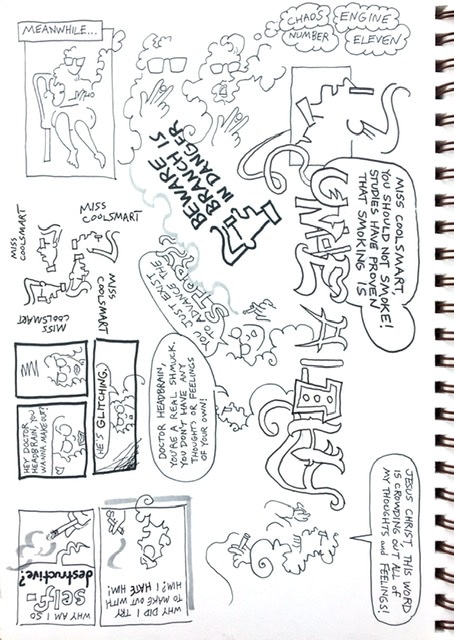 MEANWHILE...
CHAOS
ENGINE
NUMBER
ELEVEN
BEWARE
BRANCH IS
IN DANGER
MISS COOLSMART,
YOU SHOULD NOT SMOKE!
STUDIES HAVE PROVEN
THAT SMOKING IS
JESUS CHRIST THIS WORD
IS CROWDING OUT ALL OF
MY THOUGHTS and FEELINGS!
YOU JUST EXIST
TO ADVANCE THE
STORY
DOCTOR HEADBRAIN,
YOU'RE A REAL SHMUCK.
YOU DON'T HAVE ANY
THOUGHTS OR FEELINGS
OF YOUR OWN!
MISS
COOLSMART
MISS
COOLSMART
MISS
COOLSMART
MISS
COOLSMART
HEY DOCTOR
HEADBRAIN, YOU
WANNA MAKE OUT?
HE'S GLITCHING.
WHY DID I TRY
TO MAKE OUT WITH
HIM? I HATE HIM!
WHY AM I SO
self-
destructive?